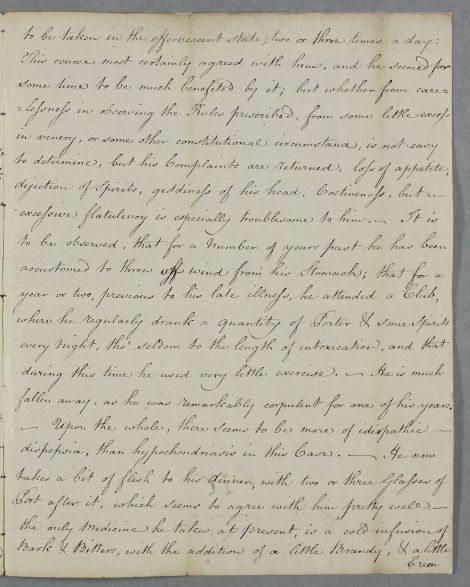 to be taken in the effervescent state, two or three times a day:
This course most certainly agreed with him, and he seemed for
some time to be much benefited by it; but whether from care=
=lessness in observing the Rules prescribed, from some little excess
in venery, or some other constitutional circumstance, is not easy
to determine, but his Complaints are returned, loss of appetite,
dejection of Spirits, giddiness of his head, Costiveness, but
excessive flatulency is especially troublesome to him. — It is
to be observed, that for a Number of years past he has been
accustomed to throw off wind from his Stomach; that for a
year or two, previous to his late illness, he attended a Club,
where he regularly drank a quantity of Porter & some Spirits
every Night, tho' seldom to the length of intoxication, and that
during this time he used very little exercise. — He is much
fallen away, as he was remarkably corpulent for one of his years.
— Upon the whole, there seems to be more of idiopathic —
dispepsia, than hypochondriasis in this Case. — He now
takes a bit of flesh to his dinner, with two or three Glasses of
Port after it, which seems to agree with him pretty well. —
the only Medicine he takes at present, is a cold infusion of
Bark & Bitters, with the addition of a little Brandy, & a little
Crem